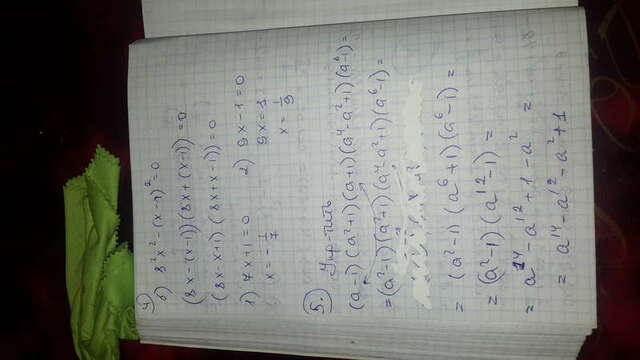 4)
б) 8²x² - (x-1)² = 0
(8x - (x-1)) (8x + (x-1)) = 0
(8x - x + 1) (8x + x - 1) = 0
1) 7x + 1 = 0 2) 9x - 1 = 0
x = - 1/7 9x = 1
x = 1/9
5. Упр-тить
(a-1)(a²+1)(a+1)(a⁴-a²+1)(a⁶-1) =
= (a²-1)(a²+1)(a⁴-a²+1)(a⁶-1) =
= (a²-1)(a⁶+1)(a⁶-1) =
= (a²-1)(a¹²-1) =
= a¹⁴ - a¹² + 1 - a² =
= a¹⁴ - a¹² - a² + 1